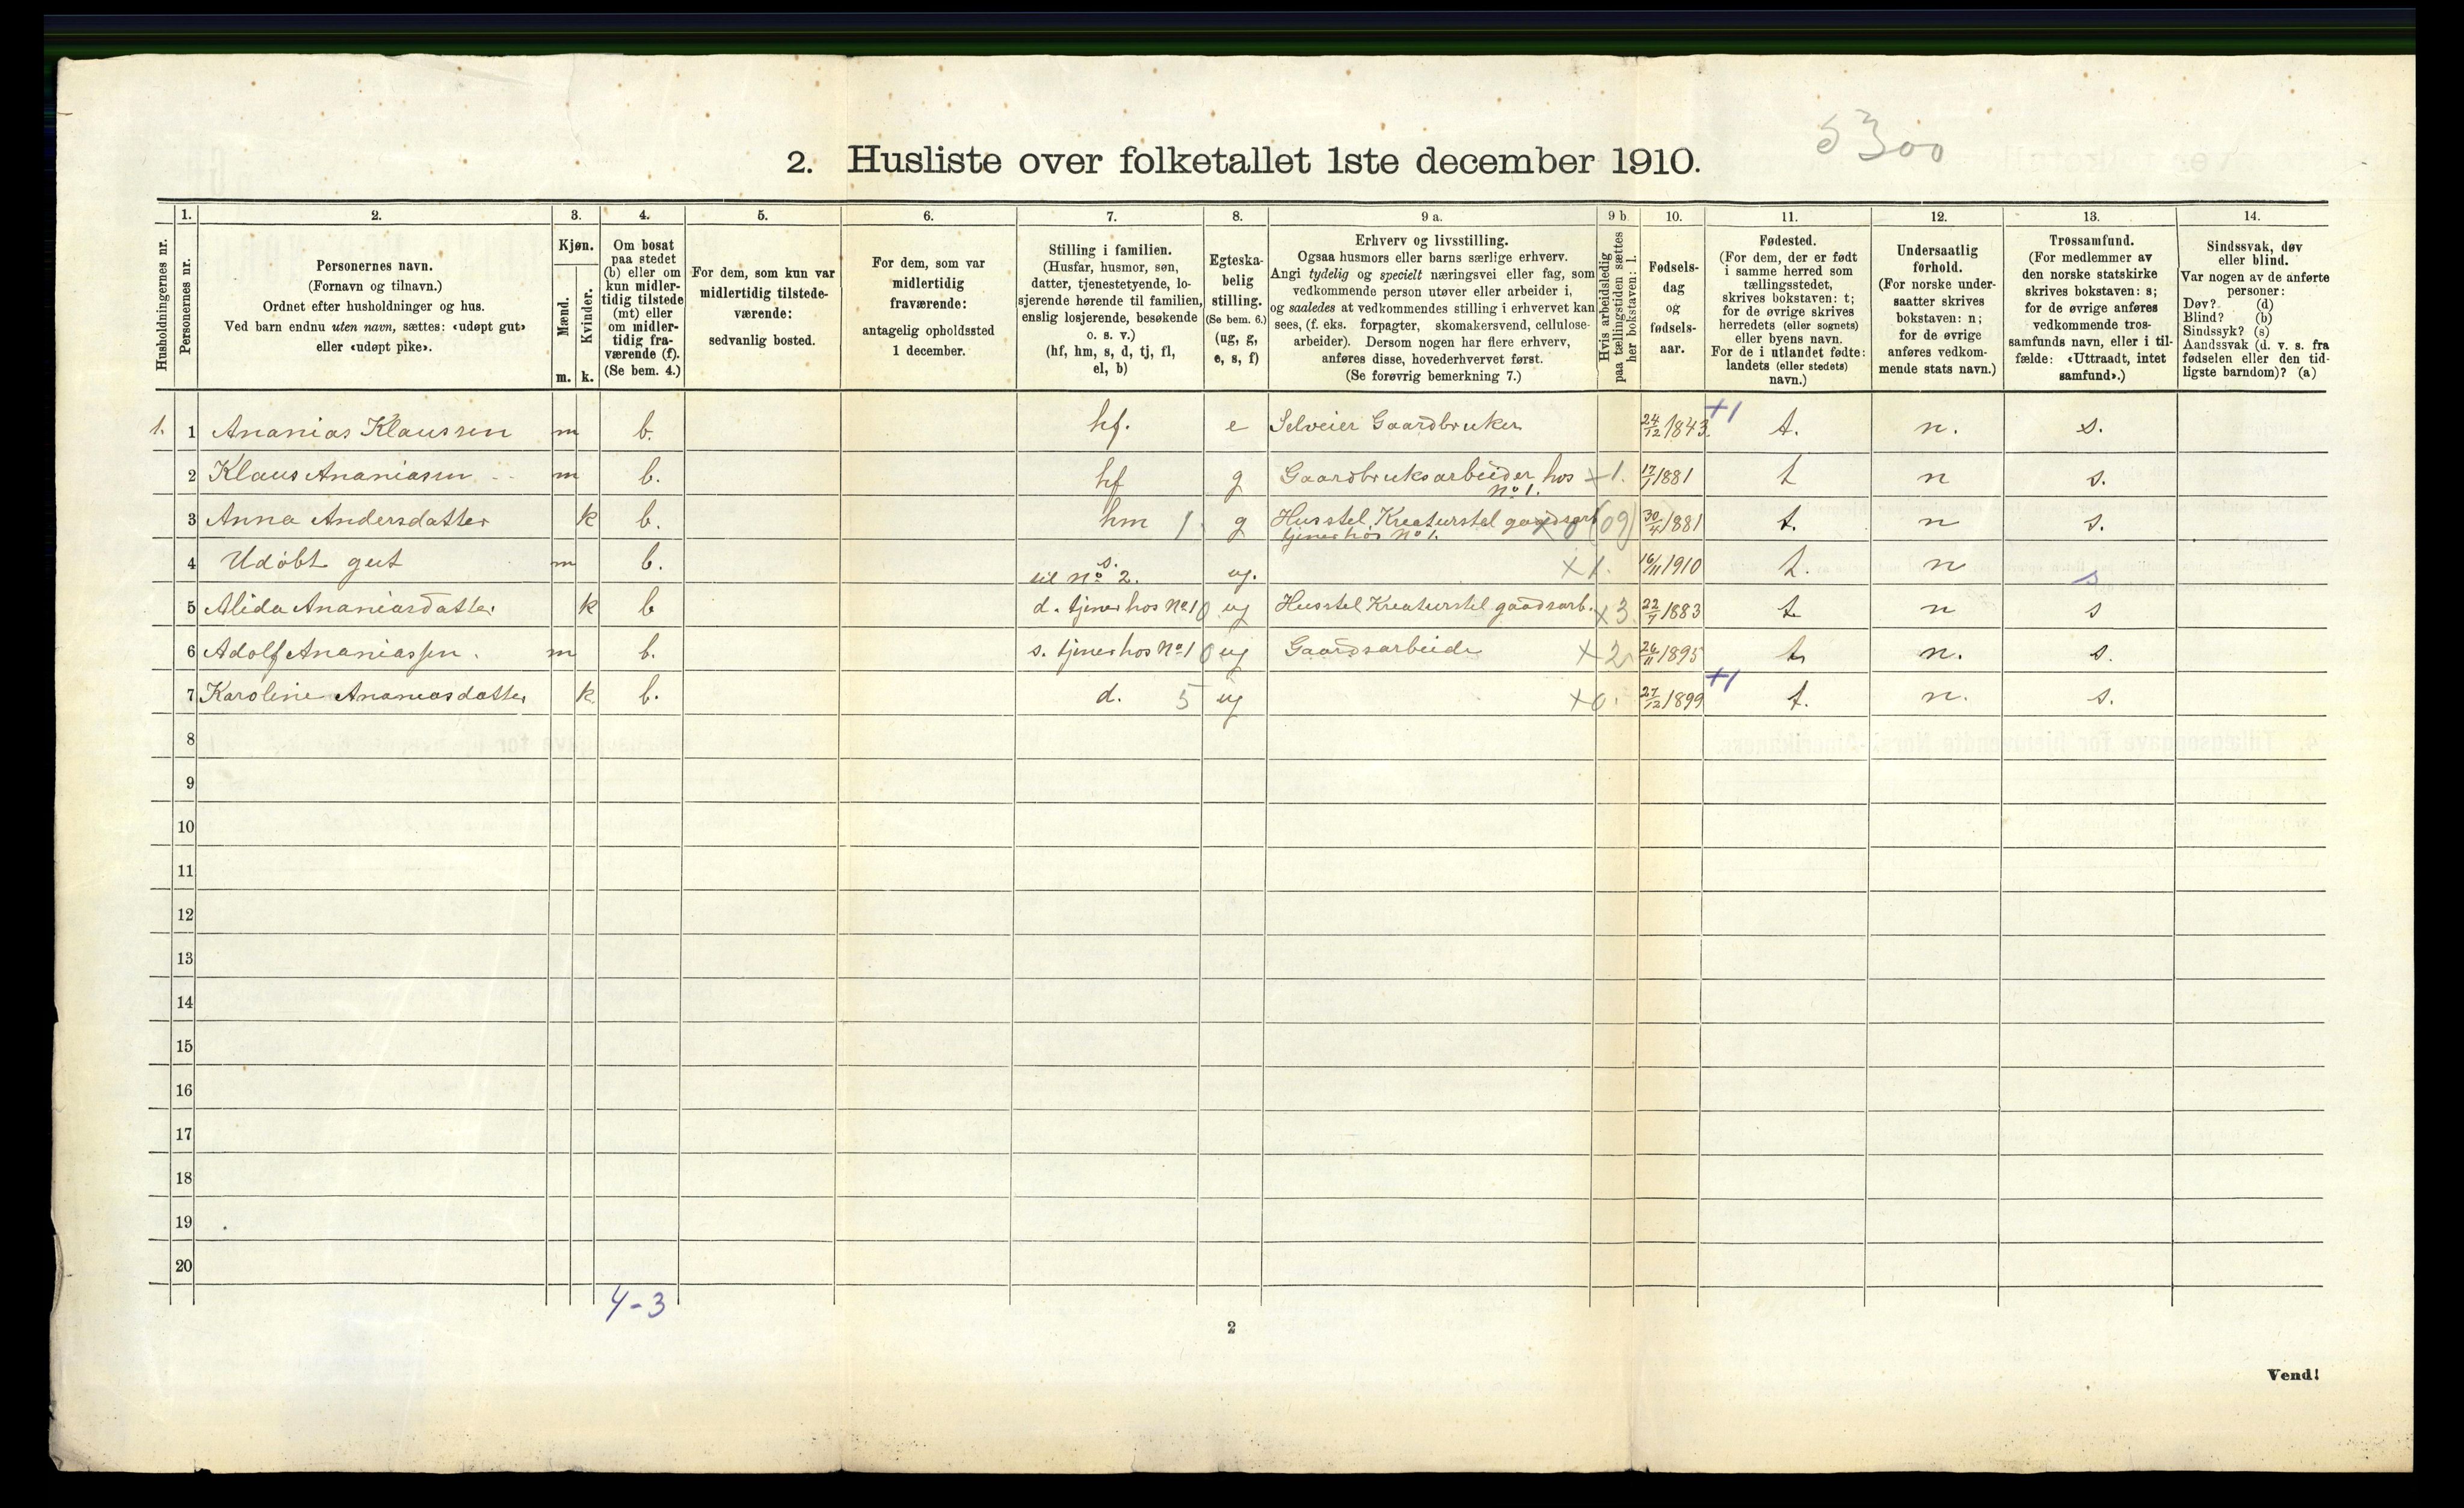 5300
2. Husliste over folketallet 1ste december 1910.
Husholdningernes nr.
1.
Personernes nr.
2.
Personernes navn.
(Fornavn og tilnavn.)
Ordnet efter husholdninger og hus.
Ved barn endnu uten navn, sættes: «udøpt gut»
eller «udøpt pike».
3.
Kjøn.
Mænd.
Kvinder.
m. k.
4.
Om bosat
paa stedet
(b) eller om
kun midler-
tidig tilstede
(mt) eller
om midler-
tidig fra-
værende (f).
(Se bem. 4.)
5.
For dem, som kun var
midlertidig tilstede-
værende:
sedvanlig bosted.
6.
For dem, som var
midlertidig
fraværende:
antagelig opholdssted
1 december.
7.
Stilling i familien.
(Husfar, husmor, søn,
datter, tjenestetyende, lo-
sjerende hørende til familien,
enslig losjerende, besøkende
o. s. v.)
(hf, hm, s, d, tj, fl,
el, b)
8.
Egteska-
belig
stilling.
(Se bem. 6.)
(ug, g,
e, s, f)
9 a.
Erhverv og livsstilling.
Ogsaa husmors eller barns særlige erhverv.
Angi tydelig og specielt næringsvei eller fag, som
vedkommende person utøver eller arbeider i,
og saaledes at vedkommendes stilling i erhvervet kan
sees, (f. eks. forpagter, skomakersvend, cellulose-
arbeider). Dersom nogen har flere erhverv,
anføres disse, hovederhvervet først.
(Se forøvrig bemerkning 7.)
9 b
Hvis arbeidsledig
paa tællingstiden sættes
her bokstaven: l.
10.
Fødsels-
dag
og
fødsels-
aar.
11.
Fødested.
(For dem, der er født
i samme herred som
tællingsstedet,
skrives bokstaven: t;
for de øvrige skrives
herredets (eller sognets)
eller byens navn.
For de i utlandet fødte:
landets (eller stedets)
navn.)
12.
Undersaatlig
forhold.
(For norske under-
saatter skrives
bokstaven: n;
for de øvrige
anføres vedkom-
mende stats navn.)
13.
Trossamfund.
(For medlemmer av
den norske statskirke
skrives bokstaven: s;
for de øvrige anføres
vedkommende tros-
samfunds navn, eller i til-
fælde: «Uttraadt, intet
samfund».)
14.
Sindssvak, døv
eller blind.
Var nogen av de anførte
personer:
Døv? (d)
Blind? (b)
Sindssyk? (s)
Aandssvak (d. v. s. fra
fødselen eller den tid-
ligste barndom)? (a)
1. 1 Ananias Klaussen m b. hf. e Selveier Gaardbruker 24/12 1843. +1 t. n. s.
2 Klaus Ananiasen m b. hf g Gaardbruksarbeider hos No 1. +1. 17/1 1881 t n s.
3 Anna Andersdatter k b. hm 1 g Husstel, Kreaturstel gaardsarb tjener hos No 1. x 0 (09) 30/4 1881 t. n s.
4 Udöbt gut m b. s. til No 2. ug. x 1. 16/11 1910 t. n s
5 Alida Ananiasdatter k b d. tjener hos No 1 0 ug Husstel Kreaturstel gaadsarb. x 3. 22/7 1883 t n s
6 Adolf Ananiassen. m b. s. tjener hos No 1 0 ug Gaardsarbeide x 2 26/11 1895 t n. s.
7 Karoline Ananiasdatter k. b. d. 5 ug x 0. 27/12 1899 +1 t. n. s.
8
9
10
11
12
13
14
15
16
17
18
19
20
4-3
2
Vend!